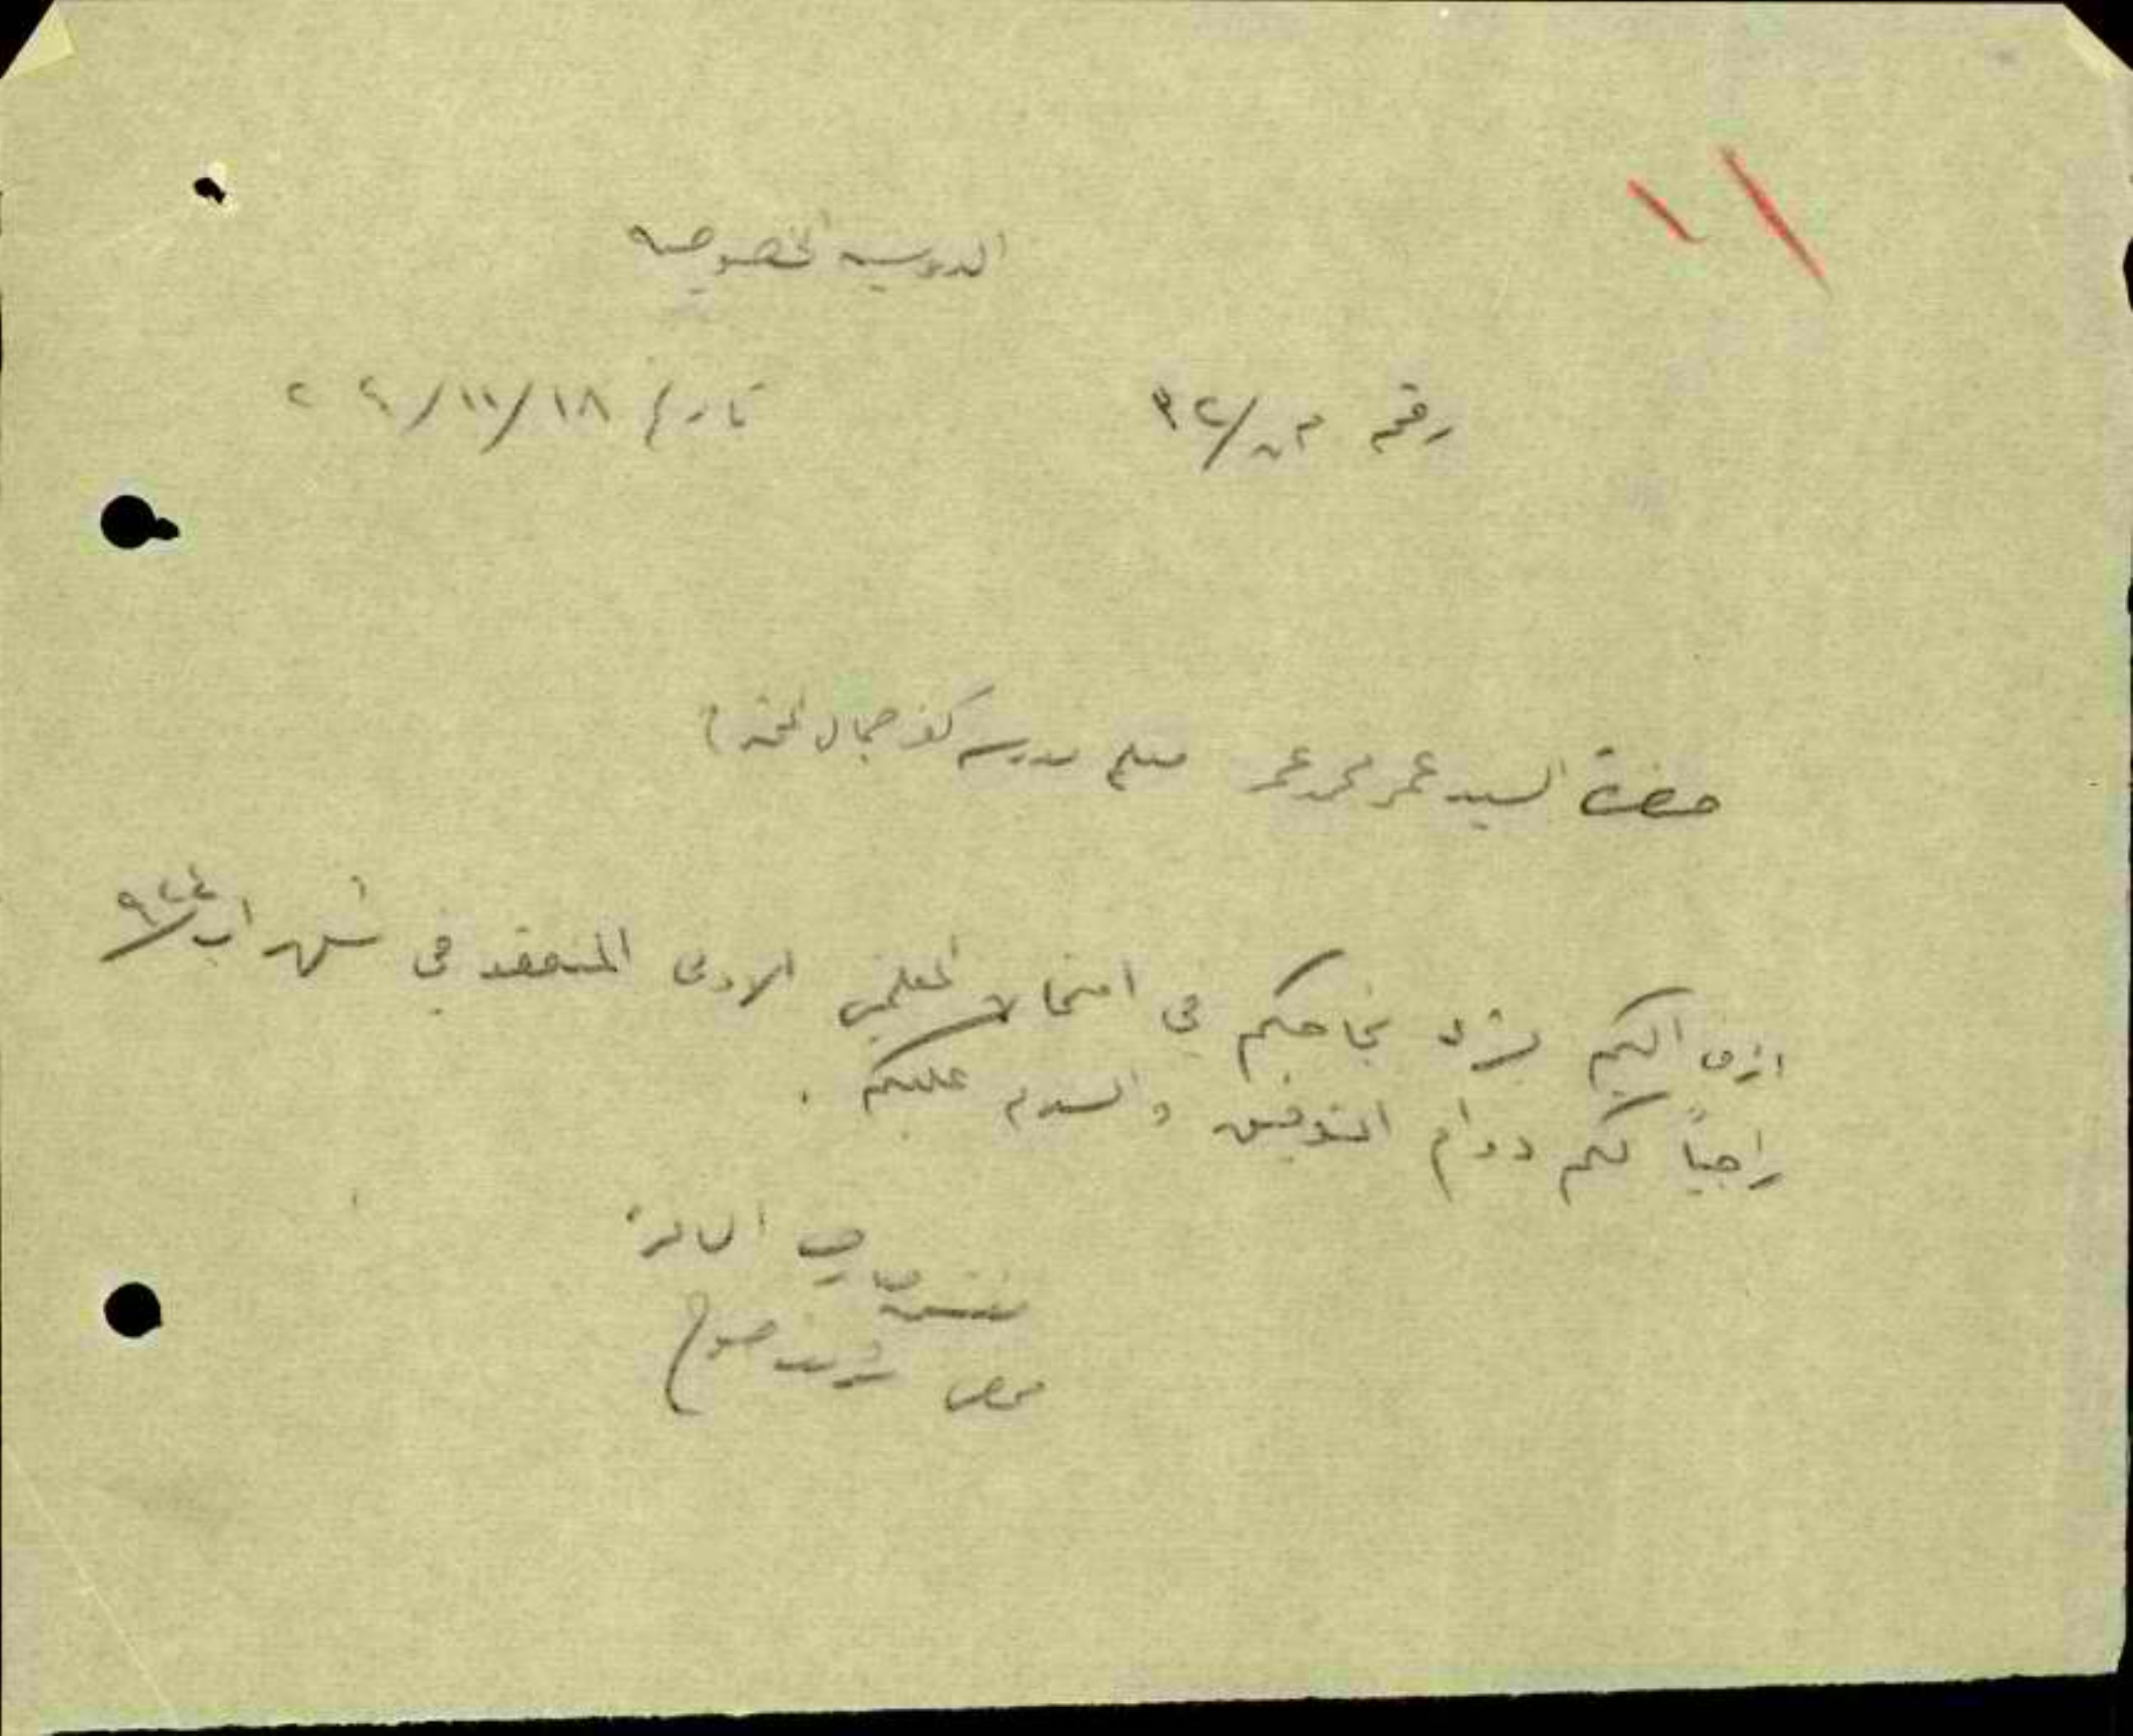 الدوسيه الخصوصيه
رقم م ن/٣٢ تاريخ ١٨/١١/٢٤
حضرة السيد عمر محمد عمر معلم مدرسة كفر جمال المحترم
ازف اليكم بشرى نجاحكم في امتحان المعلمين الادنى المنعقد في شهر اب ٩٢٤
راجياً لكم دوام التوفيق والسلام عليكم .
مفتش معارف